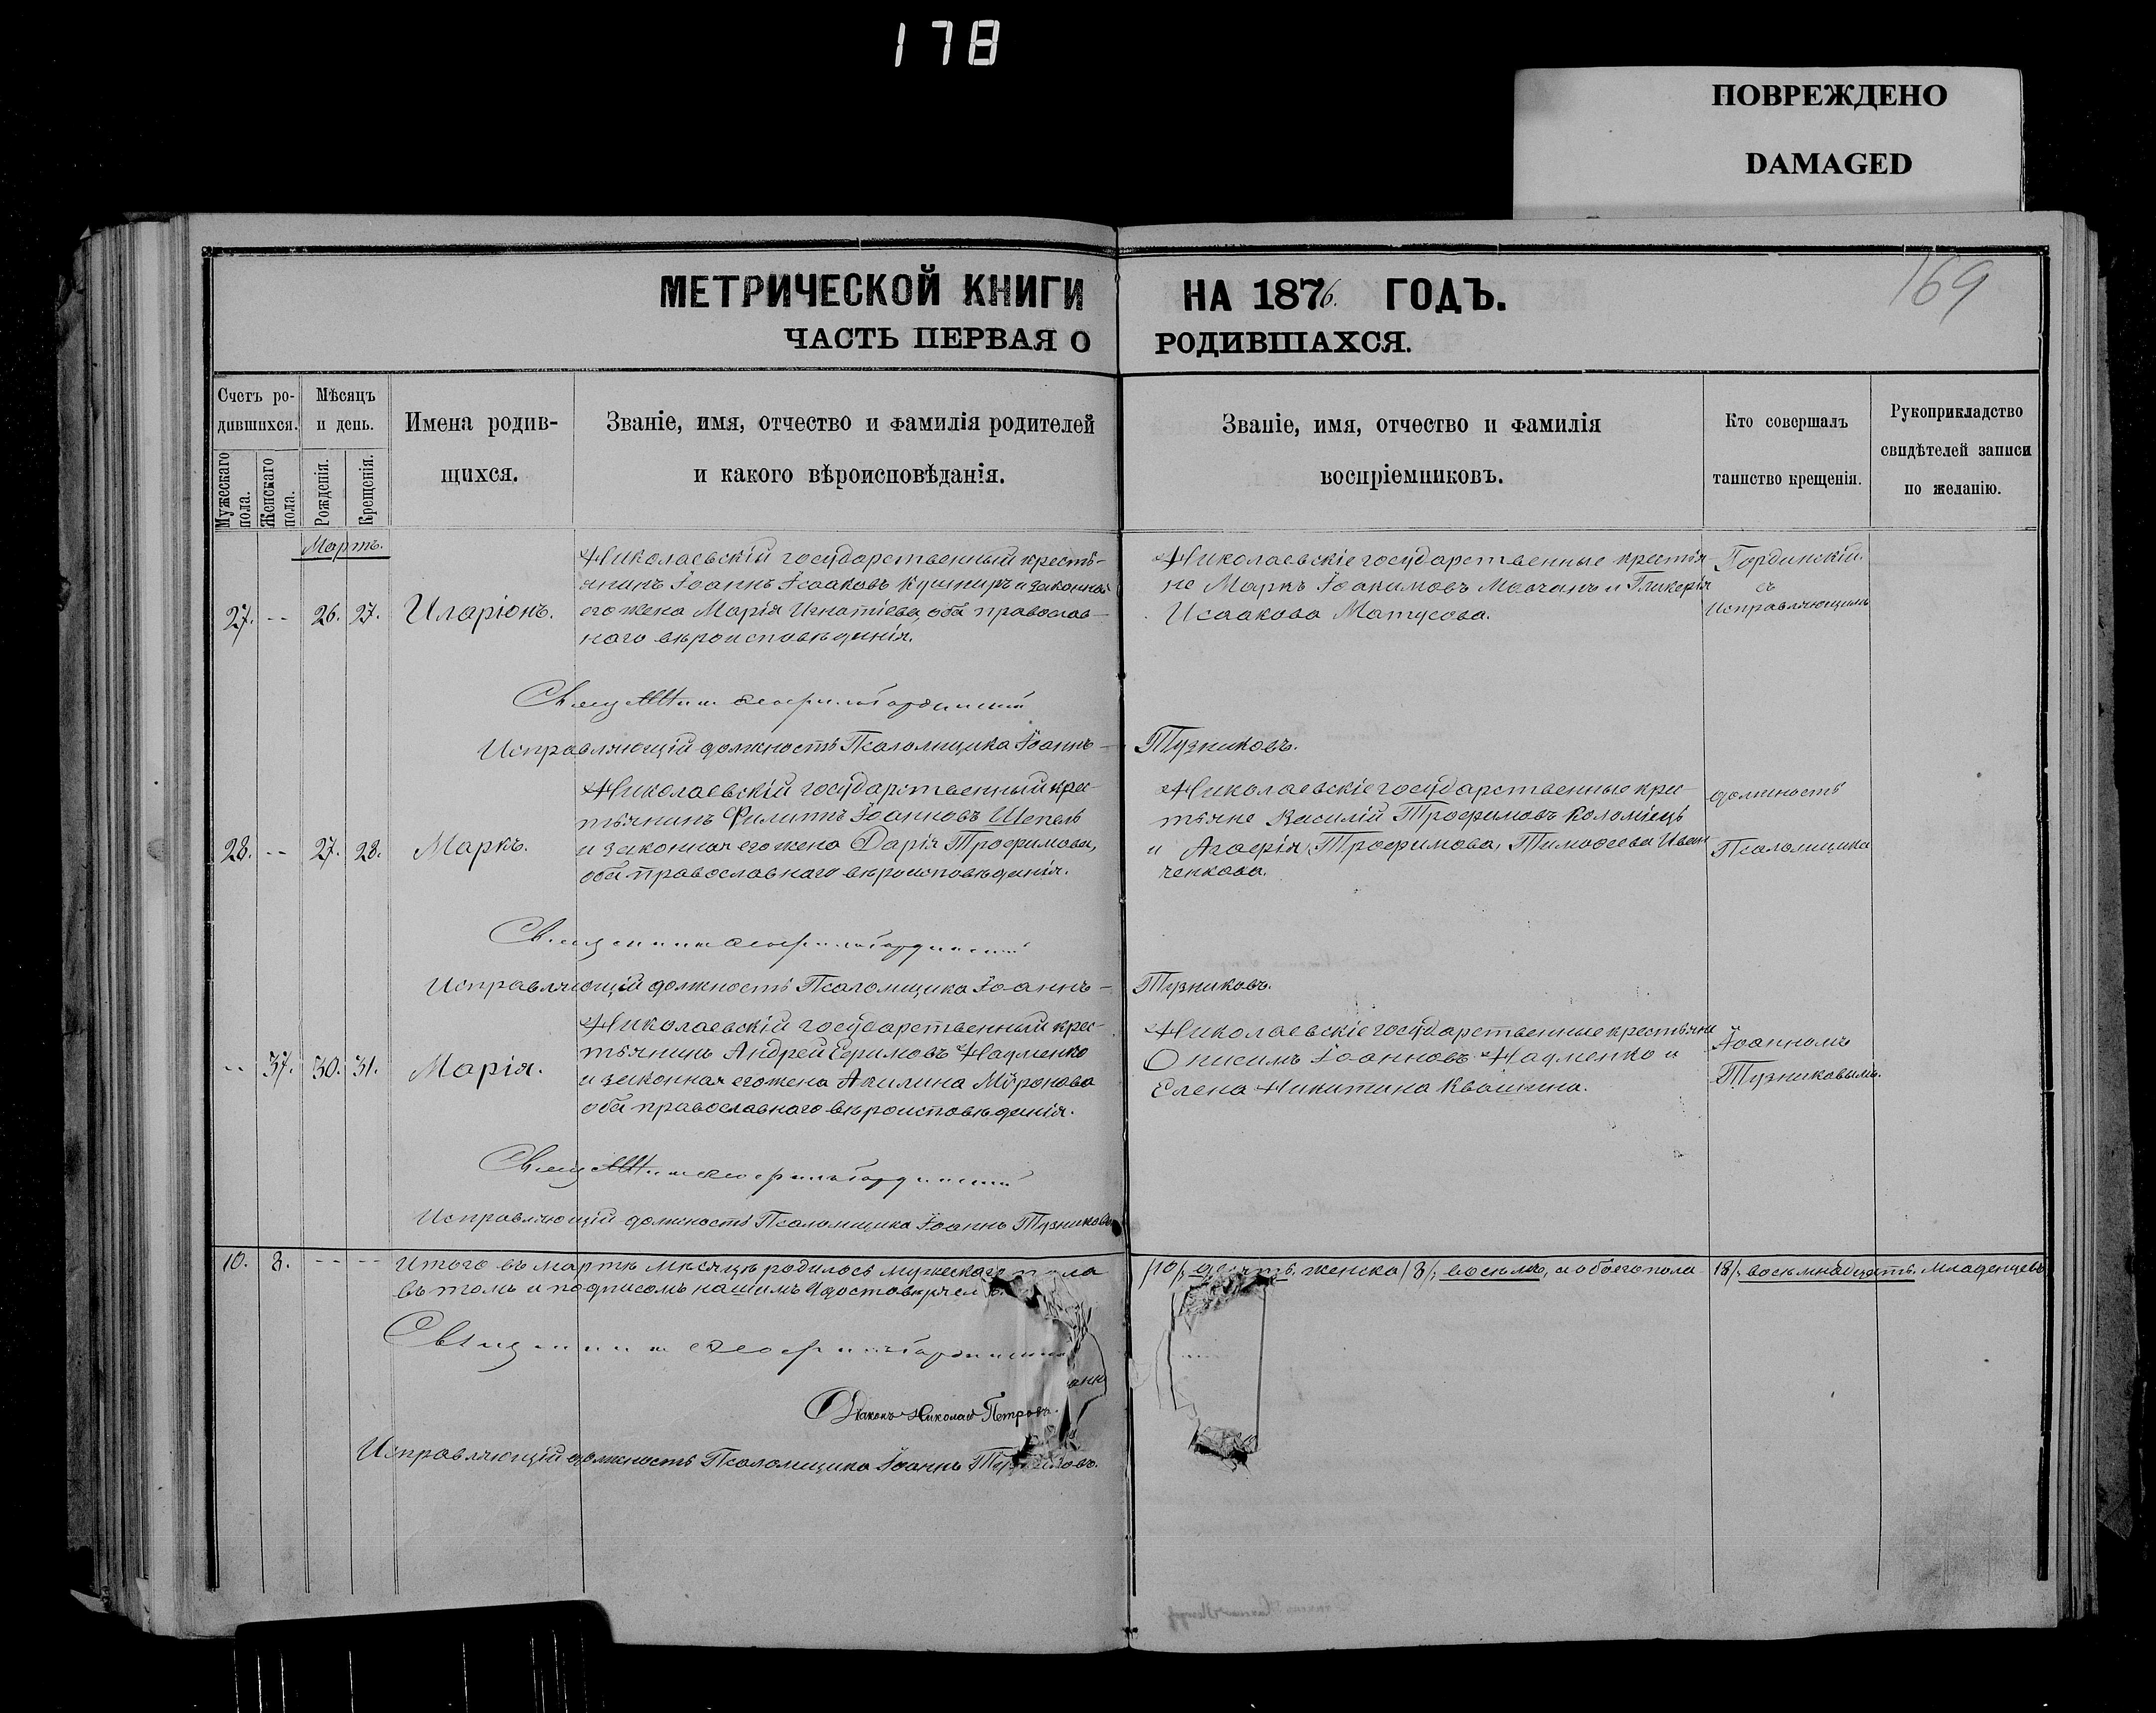 178
ПОВРЕЖДЕНО
DAMAGED
169
МЕТРИЧЕСКОЙ КНИГИ НА 1876. ГОДЪ.
ЧАСТЬ ПЕРВАЯ О РОДИВШАХСЯ.
Счетъ ро-
дившихся.
Мужескаго пола.
Женскаго пола.
Мѣсяцъ
и день.
Рожденія.
Крещенія.
Имена родив-
щихся.
Званіе, имя, отчество и фамилія родителей
и какого вѣроисповѣданія.
Званіе, имя, отчество и фамилія
воспріемниковъ.
Кто совершалъ
таинство крещенія.
Рукоприкладство
свидѣтелей записи
по желанію.
Мартъ.
27. -- 26. 27. Иларіонъ.
Николаевскій государственный кресть-
янинъ Іоаннъ Исааковъ Кушниръ и законная
его жена Марія Игнатіева, оба православ-
наго вѣроисповѣданія.
Николаевскіе государственные крестья-
не Маркъ Іоакимовъ Молчанъ и Гликерія
Исаакова Матусова.
Гординскій
съ
Исправляющимъ
Исправляющій должность Псаломщика Іоаннъ - Тузниковъ.
28. -- 27. 28. Маркъ.
Николаевскій государственный крес-
тьянинъ Филиппъ Іоанновъ Шепель
и законная его жена Дарія Трофимова,
оба православнаго вѣроисповѣданія.
Николаевскіе государственные крес-
тьяне Василій Трофимовъ Коломіецъ
и Агафія Трофимова, Тимофеева Иван-
ченкова.
должность
Псаломщика
Исправляющій должность Псаломщика Іоаннъ - Тузниковъ.
-- 37. 30. 31. Марія.
Николаевскій государственный крес-
тьянинъ Андрей Ефимовъ Науменко
и законная его жена Акилина Мѵронова
оба православнаго вѣроисповѣданія.
Николаевскіе государственные крестьяне
Онисимъ Іоанновъ Науменко и
Елена Никитина Квашина.
Іоанномъ
Тузниковымъ.
Исправляющій должность Псаломщика Іоаннъ Тузниковъ
10. 8. -- -- Итого въ мартѣ мѣсяцѣ родилось мужескаго пола /10/, десять, женска /8/, восемь, а обоего пола 18/, восемнадцать младенцевъ
въ томъ и подписомъ нашимъ удостовѣряем
Діаконъ Николай Петровъ.
Исправляющій должность Псаломщика Іоаннъ Тузниковъ.